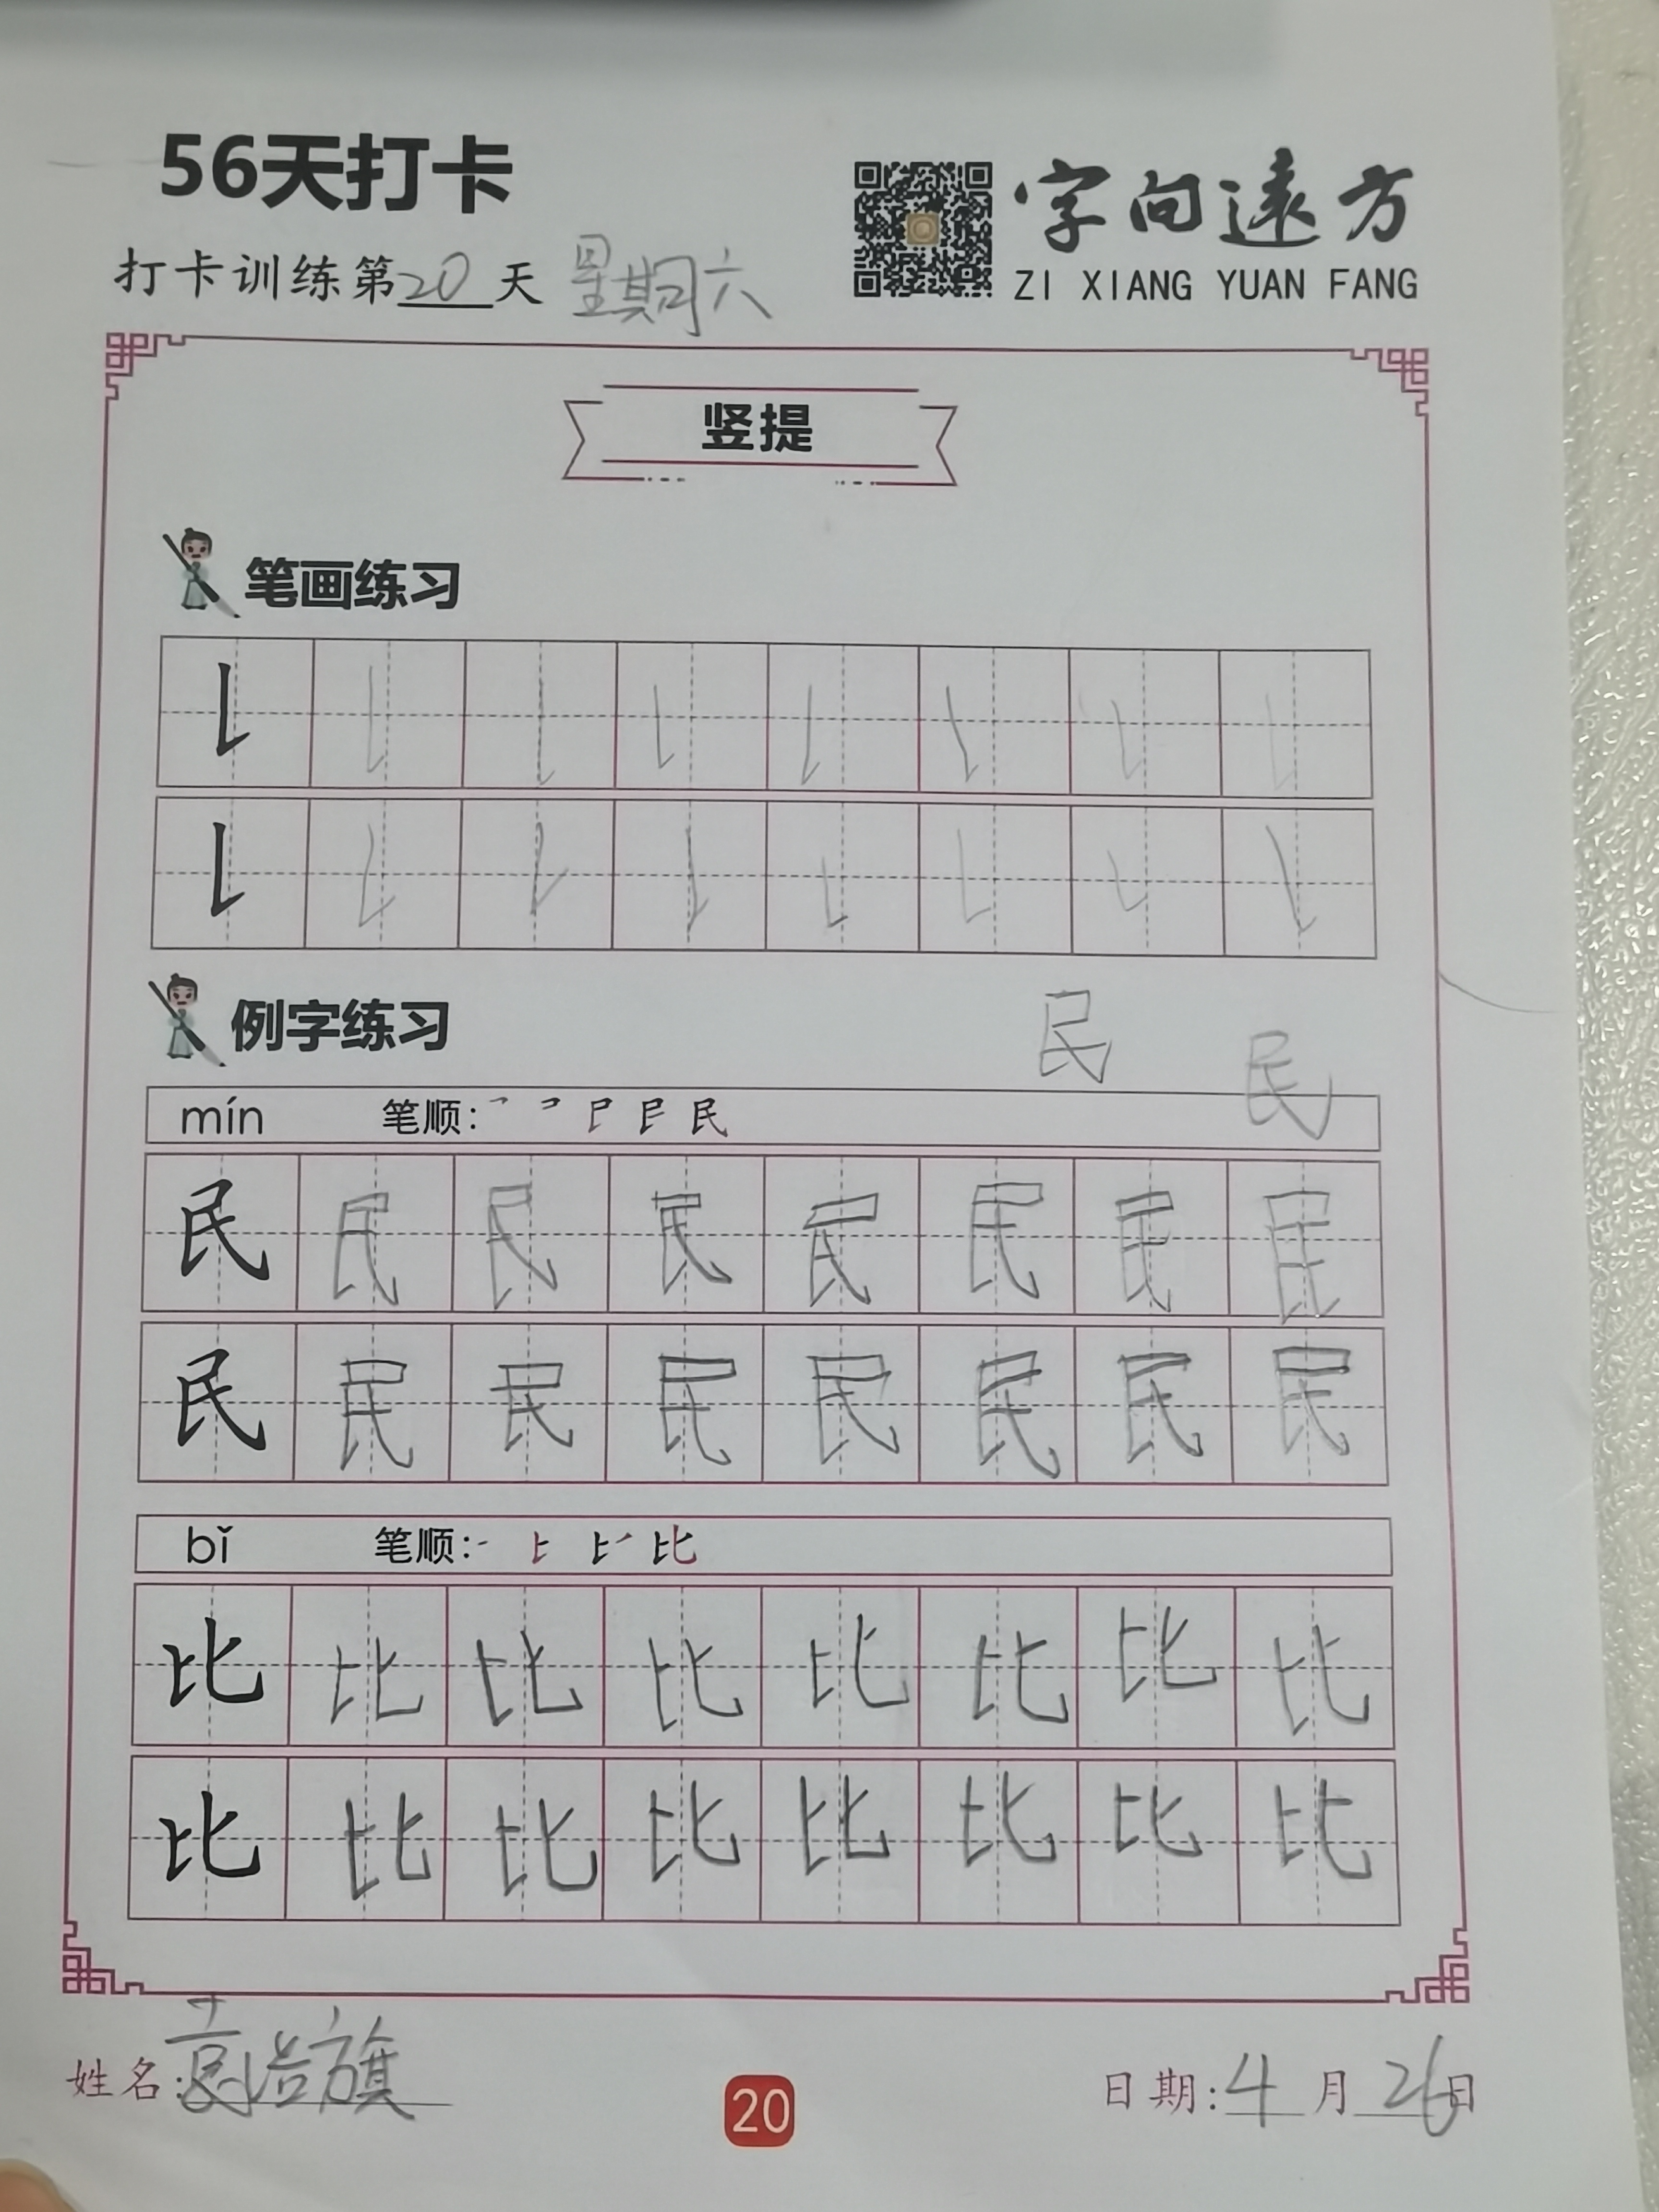 56天打卡
字向遠方
ZI XIANG YUAN FANG
打卡训练第20天 星期六
竖提
笔画练习
例字练习
民 民
mín 笔顺:
民 民 民 民 民 民 民 民
民 民 民 民 民 民 民 民
bǐ 笔顺:
比 比 比 比 比 比 比 比
比 比 比 比 比 比 比 比
姓名: 旗
20
日期:4月26日